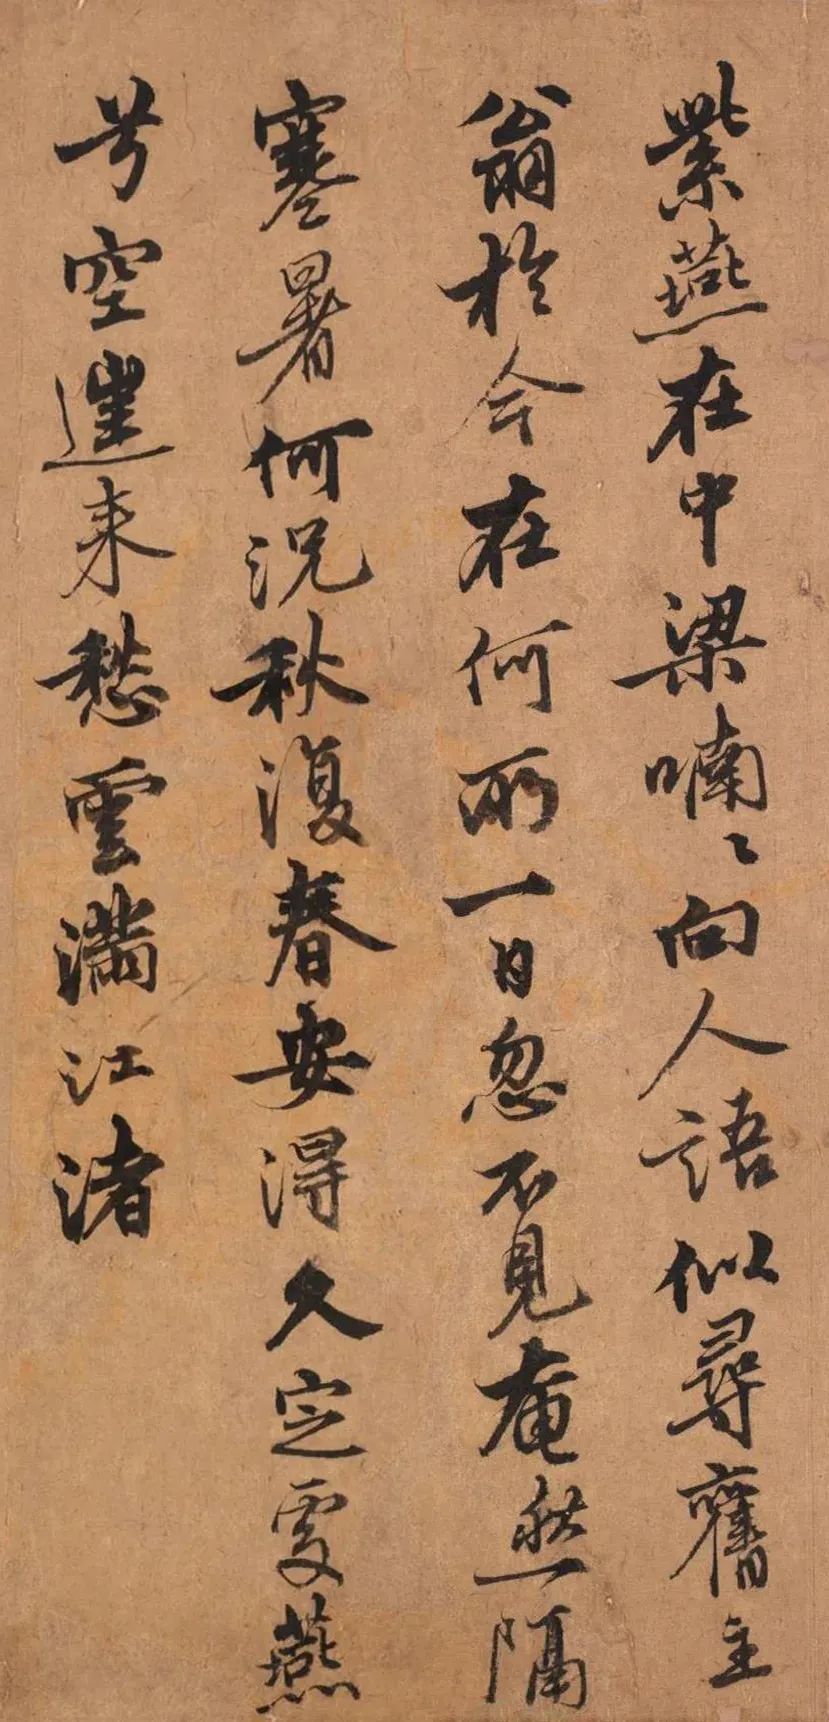 紫燕在中梁喃〻向人語似尋舊主
翁於今在何所一日忽不見奄然隔
寒暑何況秋復春安得久定處燕
兮空遑来愁雲滿江渚